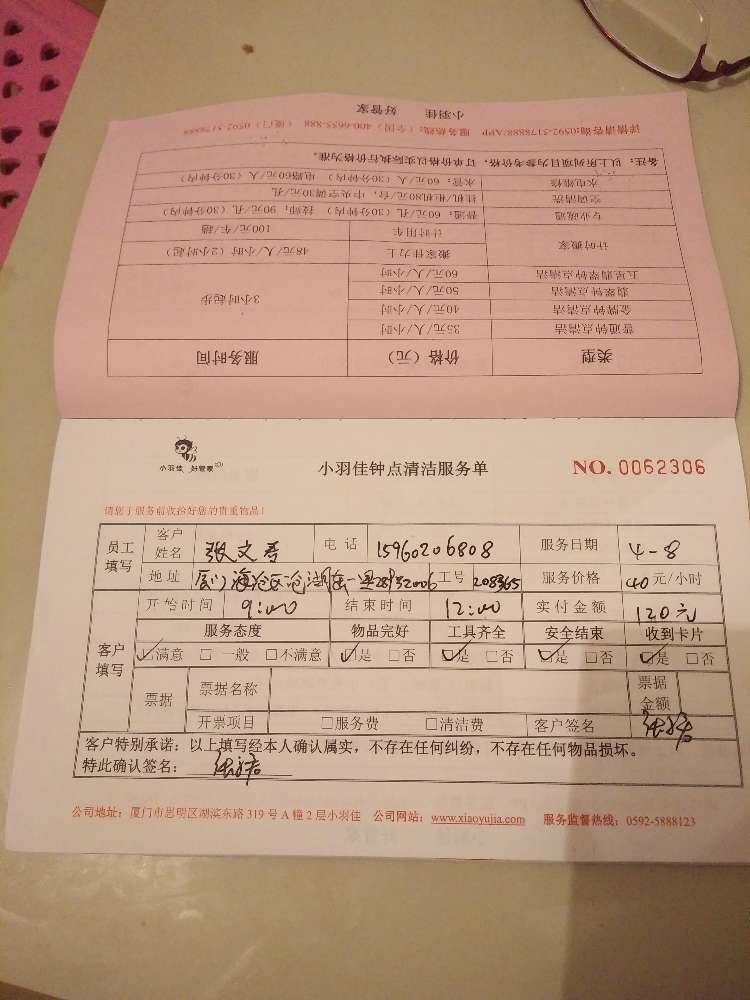 小羽佳 好管家
详情请咨询:0592-5178888/APP 服务热线:(全国)400-6655-888 (厦门)0592-5178888
类型 价格(元) 服务时间
普通钟点清洁 35元/人/小时 3小时起步
金牌钟点清洁 40元/人/小时
翡翠钟点清洁 50元/人/小时
五星翡翠钟点清洁 60元/人/小时
计时搬家 搬家佳力士 48元/人/小时(2小时起)
计时用车 100元/车/趟
专业疏通 普通:60元/孔(30分钟内) 技师:90元/孔(30分钟内)
空调清洗 挂机/柜机80元/台,中央空调30元/孔
水电维修 水管:60元/人(30分钟内) 电路60元/人(30分钟内)
备注:以上所列项目为参考价格,订单价格以实际执行价格为准。
小羽佳 好管家
小羽佳钟点清洁服务单
NO. 0062306
请您于服务前收拾好您的贵重物品!
员工填写 客户姓名 张文 电话 15960206808 服务日期 4-8
地址 厦门海沧区沧湖东一里 工号 208365 服务价格 40元/小时
客户填写 开始时间 9:00 结束时间 12:00 实付金额 120元
服务态度 物品完好 工具齐全 安全结束 收到卡片
☑满意 □一般 □不满意 ☑是 □否 ☑是 □否 ☑是 □否 ☑是 □否
票据 票据名称 票据金额
开票项目 □服务费 □清洁费 客户签名
客户特别承诺:以上填写经本人确认属实,不存在任何纠纷,不存在任何物品损坏。
特此确认签名:
公司地址:厦门市思明区湖滨东路319号A幢2层小羽佳 公司网站:www.xiaoyujia.com 服务监督热线:0592-5888123